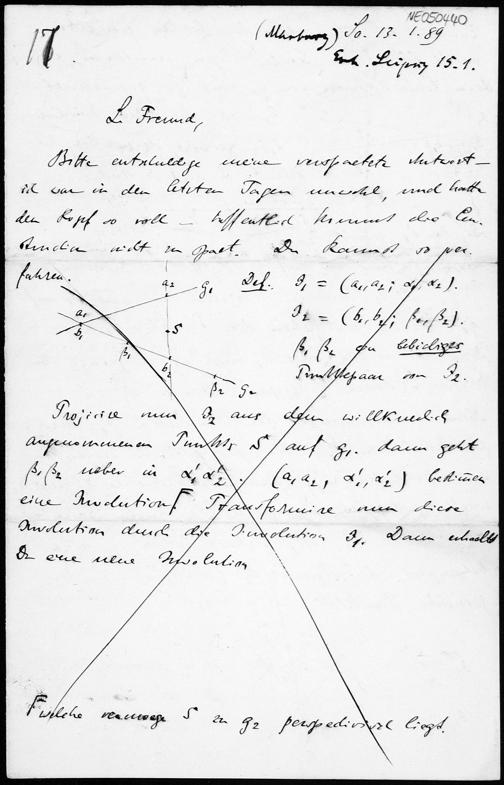 NE050440
17.
(Marburg) So. 13.1.89
Erh. Leipzig 15.1.
L. Freund,
Bitte entschuldige meine verspaetete Antwort –
ich war in den letzten Tagen unwohl, und hatte
den Kopf so voll – hoffentlich kommt die Con-
struction nicht zu spaet. Du kannst so ver-
fahren.
a2 g1 Def. I1 = (a1, a2; α1, α2).
a1 b1 S I2 = (b1, b2; β1, β2).
β1 b2 β1 β2 ein beliebiges
β2 g2 Punktepaar von I2.
Projicire nun I2 aus dem willkuerlich
angenommenen Punkte S auf g1. dann geht
β1 β2 ueber in α1' α2'. (a1 a2, α1', α2') bestimmen
eine Involution. Transformire nun diese
Involution durch die Involution I1. Dann erhaelst
Du eine neue Involution
welche vermoege S zu g2 perspectivisch liegt.